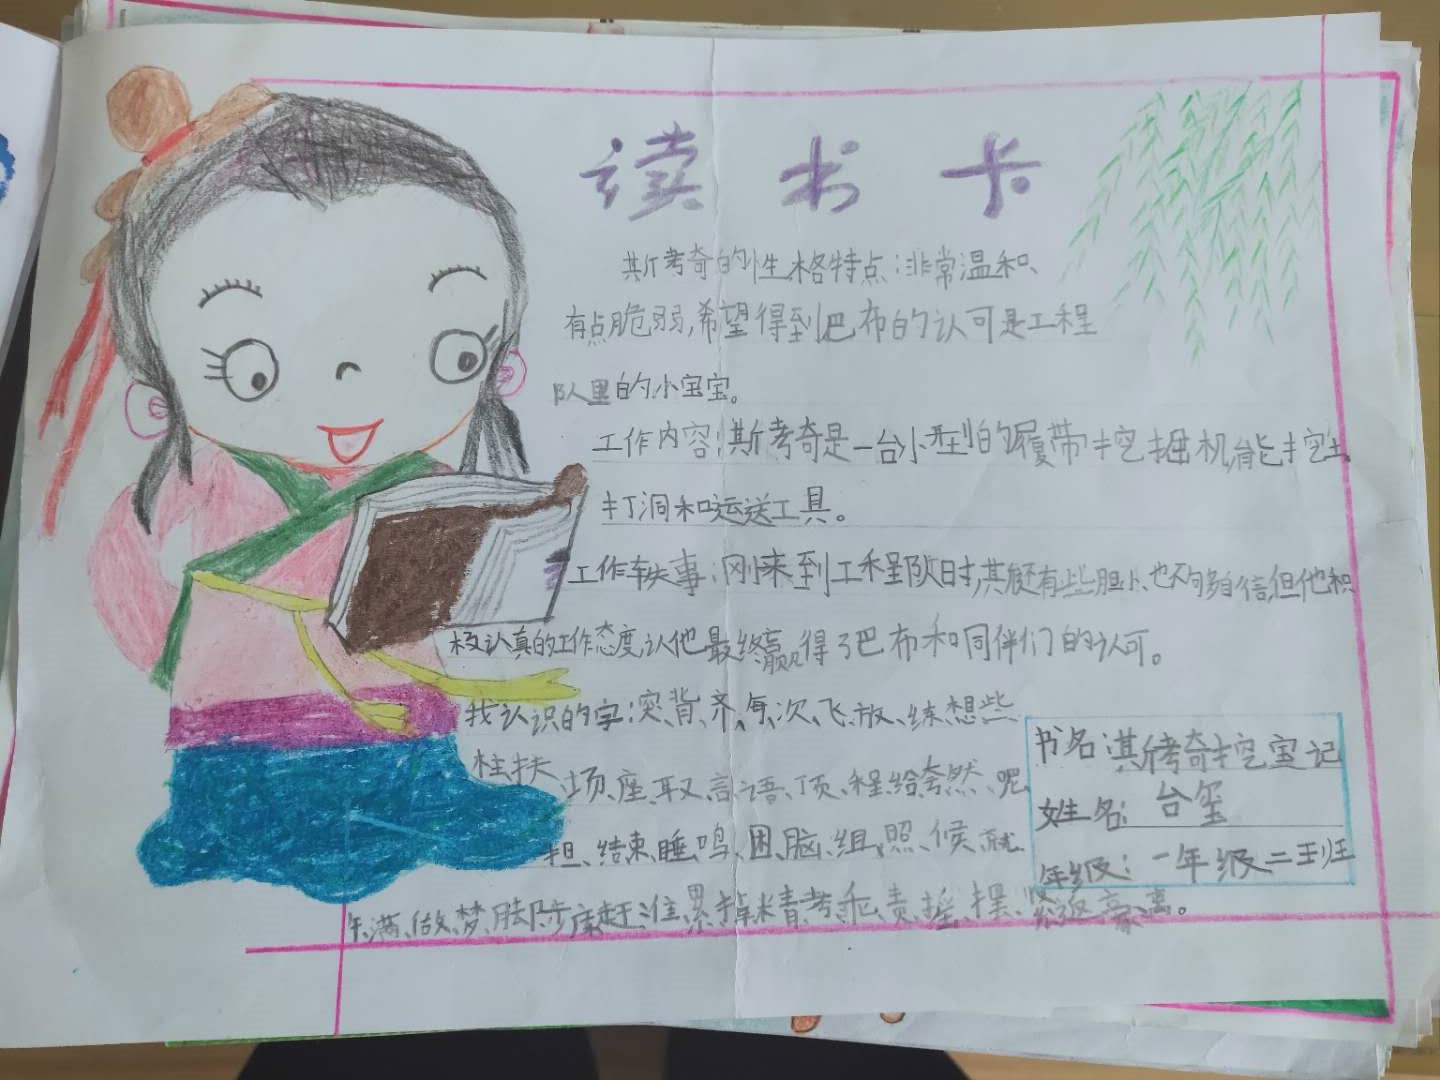 读书卡
斯考奇的性格特点:非常温和、
有点脆弱,希望得到巴布的认可是工程
队里的小宝宝。
工作内容:斯考奇是一台小型的履带挖掘机,能挖土
打洞和运送工具。
工作轶事:刚来到工程队时,其实还有些胆小、也不够自信,但他积
极认真的工作态度,认他最终赢得了巴布和同伴们的认可。
我认识的字:突、背、齐、每、次、飞、放、练、想、些
柱、扶
场、座、取、言、语、顶、程、给、突然、呢
担、结束、睡、鸣、困、脑、组、照、候、就
年、满、做、梦、赶、准、累、掉、精、考、私、责、摇、摆、紧、返、豪、离。
书名:斯考奇挖宝记
姓名:台玺
年级:一年级二班